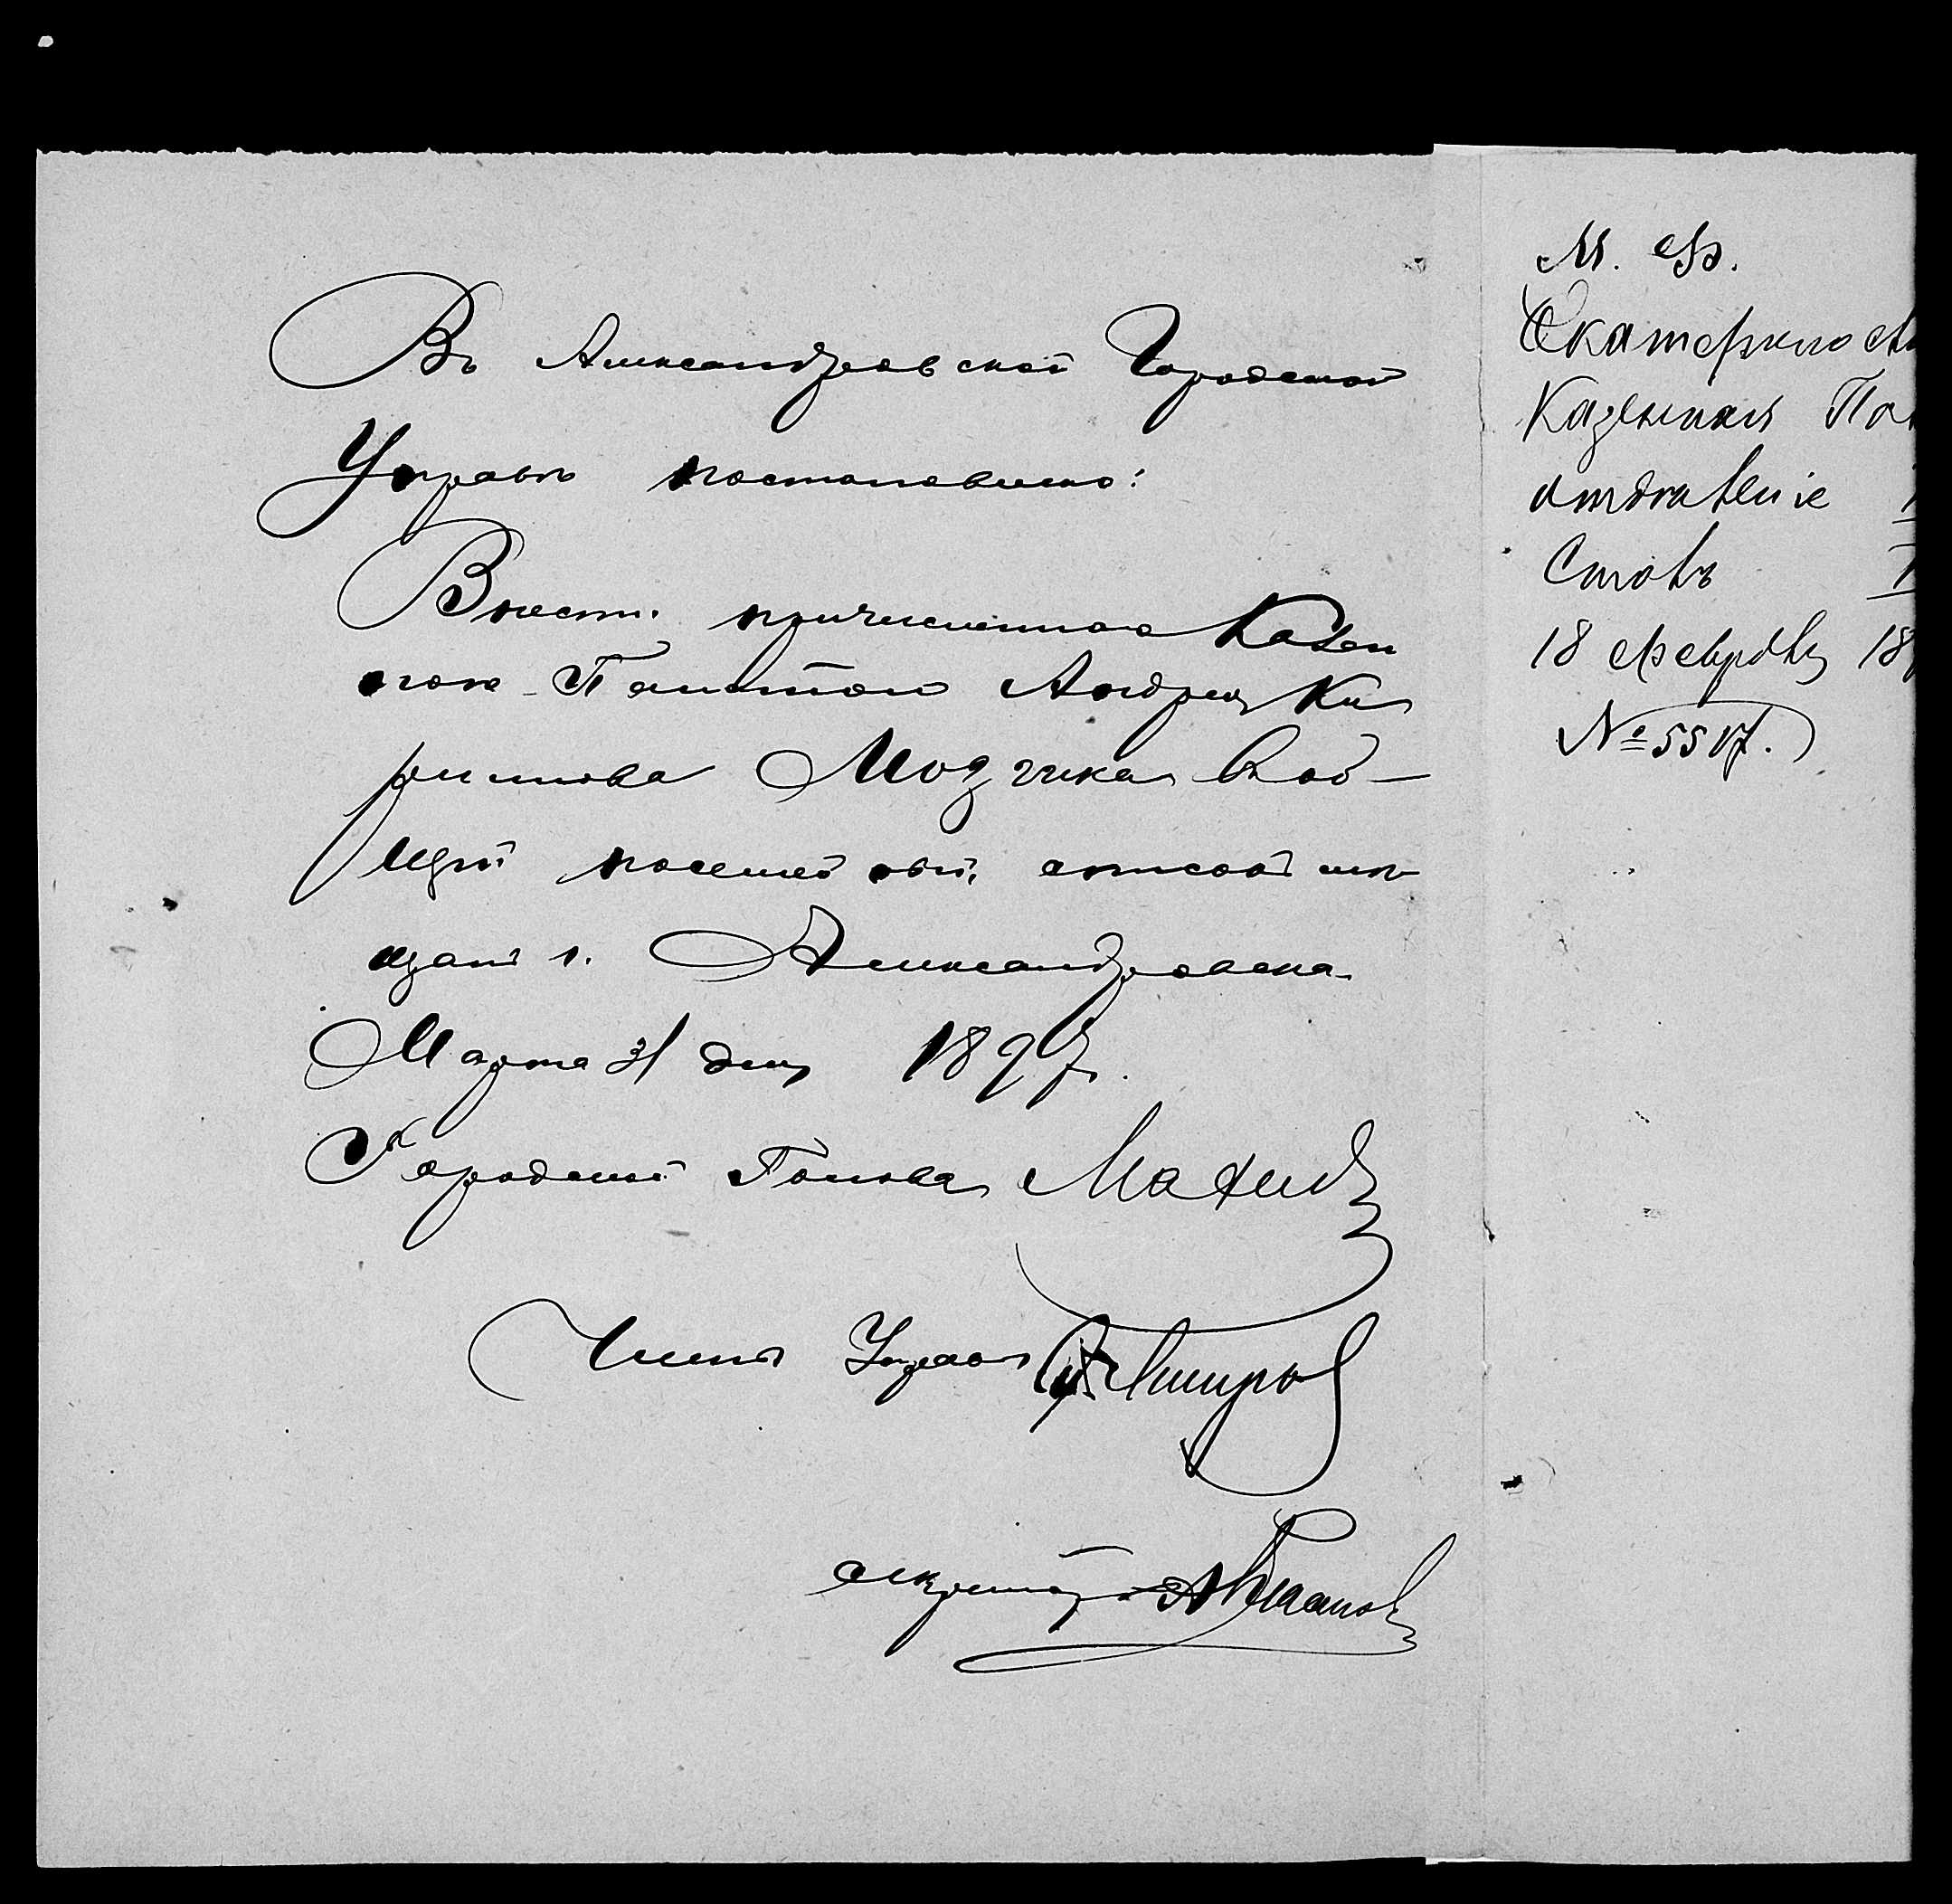 Въ Александровской Городской
Управѣ постановлено:
Внести причисленнаго Казен
ною Палатою Андрея Ки
рилова Модзика во об-
щій посемейный список мѣ
щанъ г. Александровска
Марта 31 дня 1897 г.
Городской Голова
Членъ Управы
Секретарь
М. Ф.
Екатеринослав
Казенная Пал
отдѣленіе I
Столъ I
18 февраля 18
№ 5517.